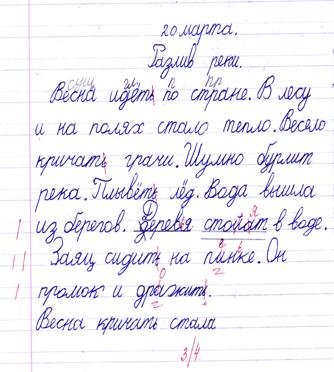 20 марта.
Разлив реки.
сущ. гл. п пр
Весна идёть по стране. В лесу
и на полях стало тепло. Весело
кричать грачи. Шумно бурлит
река. Плывёть лёд. Вода вышла
из берегов. Деревя стойат в воде.
Заяц сидить на пинке. Он
промок и дражить.
Весна кричать стала
3/4